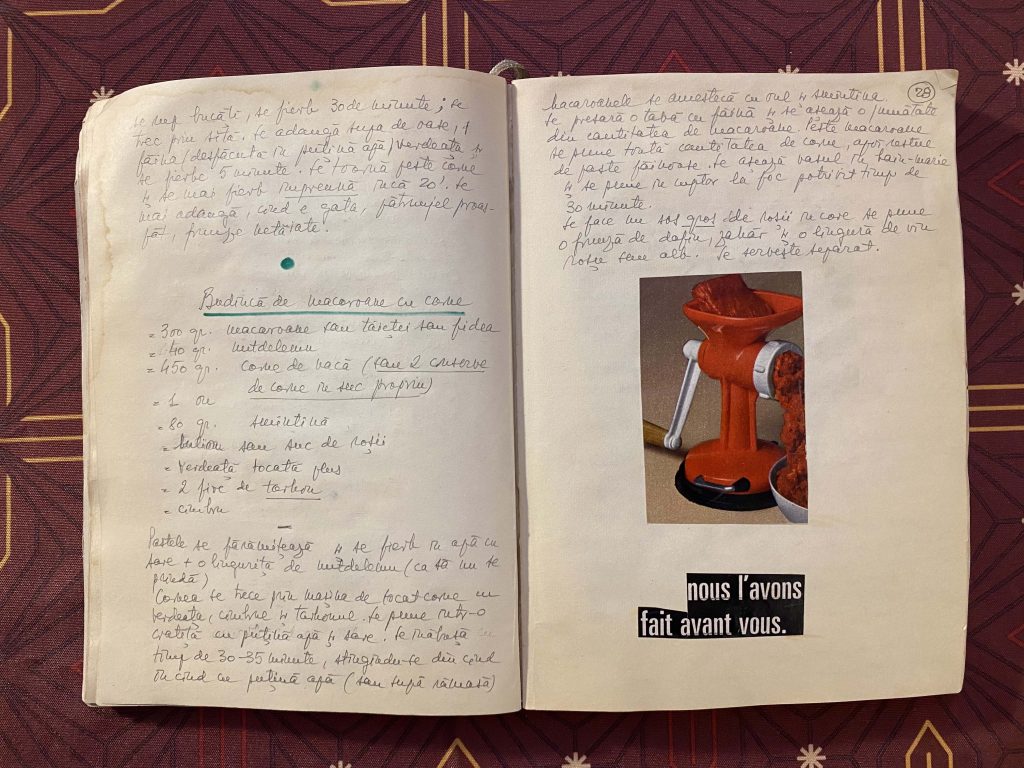 se mup bucăți, se fierb 30 de minute; se
trec prin sită. Se adaugă supa de oase, 1
făina (desfăcută în puțină apă) verdeața și
se fierbe 5 minute. Se toarnă peste carne
și se mai fierb împreună încă 20'. Se
mai adaugă, când e gata, pătrunjel proas-
păt, frunze netăiate.
Budincă de macaroane cu carne
= 300 gr. macaroane sau tăieței sau fidea
= 40 gr. untdelemn
= 450 gr. carne de vacă (sau 2 conserve
de carne în suc propriu)
= 1 ou
= 80 gr. smîntînă
= bulion sau suc de roșii
= verdeață tocată plus
= 2 fire de tarhon
= cimbru
Pastele se fărîmițează și se fierb în apă cu
sare + o linguriță de untdelemn (ca să nu se
prindă)
Carnea se trece prin mașina de tocat carne cu
verdeața, cimbrul și tarhonul. Se pune într-o
cratiță cu puțină apă și sare. Se înăbușă
timp de 30-35 minute, stingîndu-se din cînd
în cînd cu puțină apă (sau supă rămasă)
28
Macaroanele se amestecă cu oul și smîntîna.
Se presară o tavă cu făină și se așează o jumătate
din cantitatea de macaroane. Peste macaroane
se pune toată cantitatea de carne, apoi restul
de paste făinoase. Se așează vasul în bain-marie
și se pune în cuptor la foc potrivit timp de
30 minute.
Se face un sos gros de roșii în care se pune
o frunză de dafin, zahăr și o lingură de vin
roșu sau alb. Se servește separat.
nous l'avons
fait avant vous.